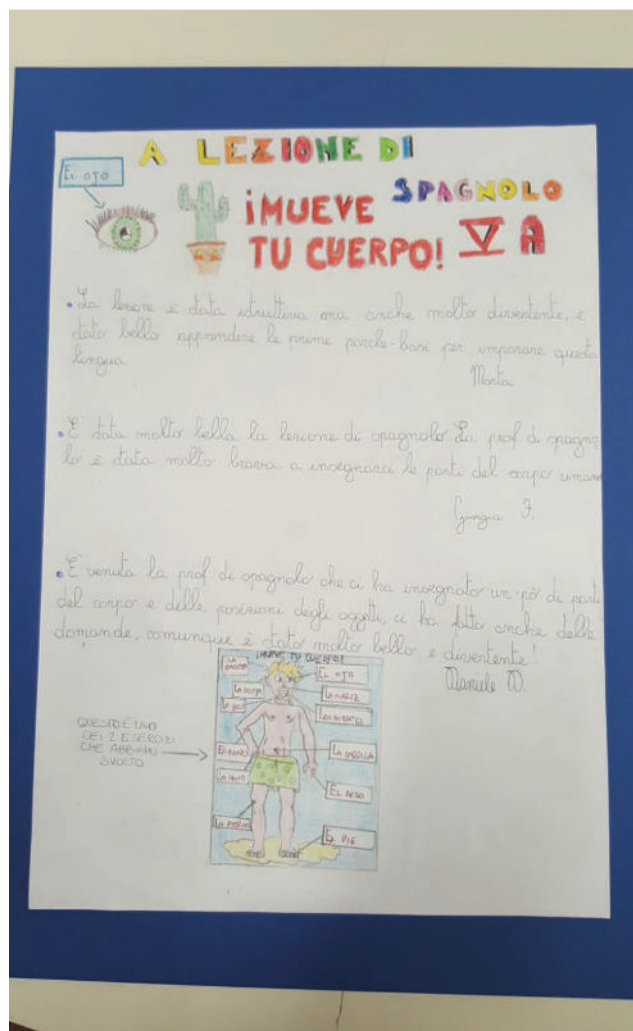 A LEZIONE DI
SPAGNOLO
EL OJO
¡MUEVE
TU CUERPO!
V A
• La lezione è stata istruttiva ma anche molto divertente, è
stato bello apprendere le prime parole-basi per imparare questa
lingua
Marta
• È stata molto bella la lezione di spagnolo La prof di spagno
lo è stata molto brava a insegnarci le parti del corpo umano
Giorgia F.
• È venuta la prof di spagnolo che ci ha insegnato un pò di parti
del corpo e delle posizioni degli oggetti, ci ha fatto anche delle
domande, comunque è stato molto bello e divertente!
Daniele D.
¡MUEVE TU CUERPO!
LA CABEZA
EL OJO
LA OREJA
LA NARIZ
LA BOCA
LOS DIENTES
EL BRAZO
LA BARRIGA
LA MANO
EL DEDO
LA PIERNA
EL PIE
QUESTO È UNO
DEI 2 ESERCIZI
CHE ABBIAMO
SVOLTO